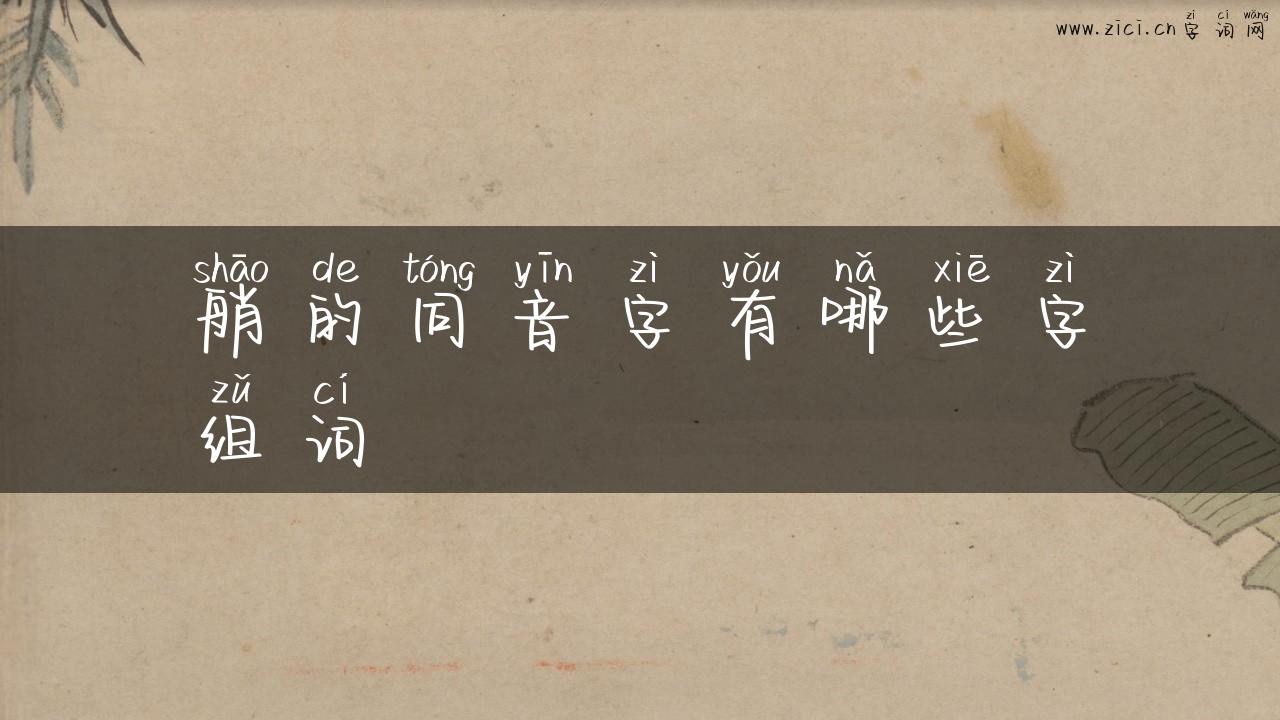 zì cí wǎng
www.zici.cn 字 词 网
shāo de tóng yīn zì yǒu nǎ xiē zì
艄 的 同 音 字 有 哪 些 字
zǔ cí
组 词